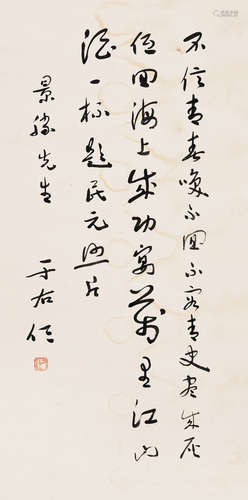 不信青春喚不回不容青史盡成灰
低回海上成功宴萬里江山
酒一杯題民元照片
景勝先生
于右任